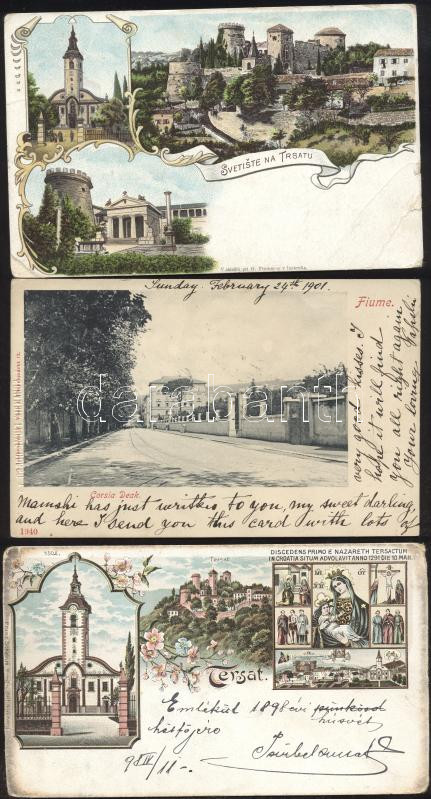 SVETIŠTE NA TRSATU
Sunday. February 24th 1901.
Fiume.
very good kisses. I
hope it will find
you all right again
Your loving
Corsia Deák.
Mamski has just written to you, my sweet darling,
and here I send you this card with lots of
1940
darabanth
DISCEDENS PRIMO E NAZARETH TERSACTUM
IN CROATIA SITUM ADVOLAVIT ANNO 1291 DIE 10. MAII.
Tersat.
Emlékül 1898 évi
húsvét
hétfőjéről
98 IV/11-